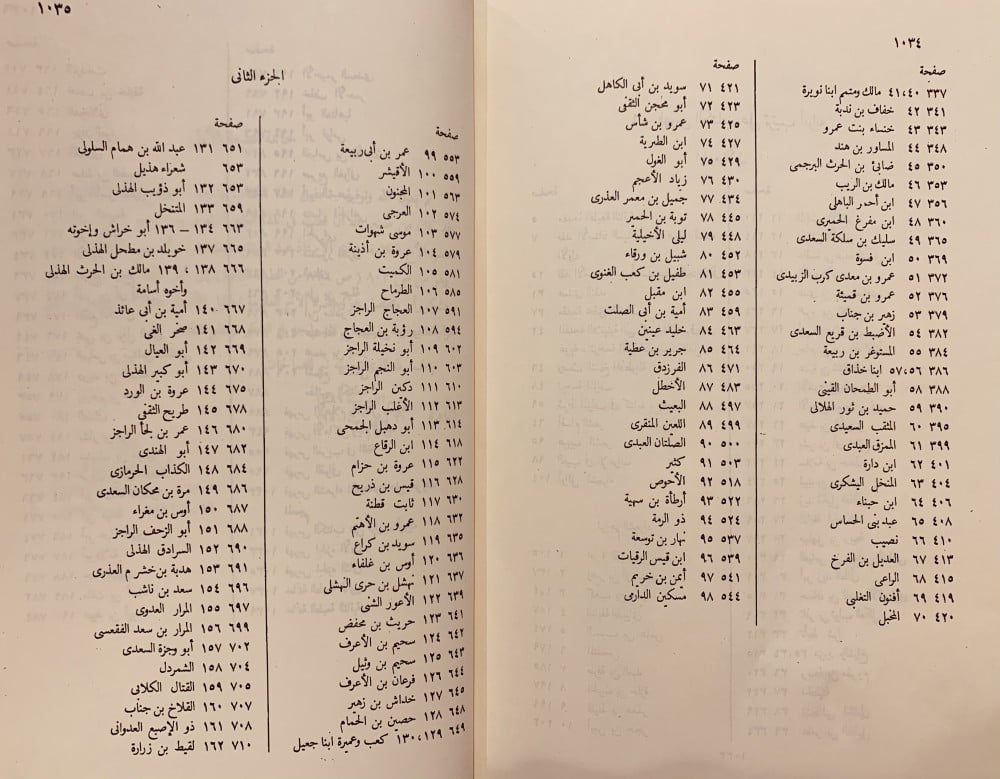 ١٠٣٤
صفحة
٣٣٧ ٤٠،٤١ مالك ومتمم ابنا نويرة
٣٤١ ٤٢ خفاف بن ندبة
٣٤٣ ٤٣ خنساء بنت عمرو
٣٤٨ ٤٤ المساور بن هند
٣٥٠ ٤٥ ضابئ بن الحرث البرجمى
٣٥٣ ٤٦ مالك بن الريب
٣٥٦ ٤٧ ابن أحمر الباهلى
٣٦٠ ٤٨ ابن مفرغ الحميرى
٣٦٥ ٤٩ سليك بن سلكة السعدى
٣٦٩ ٥٠ ابن فسوة
٣٧٢ ٥١ عمرو بن معدى كرب الزبيدى
٣٧٦ ٥٢ عمرو بن قميئة
٣٧٩ ٥٣ زهير بن جناب
٣٨٢ ٥٤ الأضبط بن قريع السعدى
٣٨٤ ٥٥ المستوغر بن ربيعة
٣٨٦ ٥٦،٥٧ ابنا خذاق
٣٨٨ ٥٨ أبو الطمحان القينى
٣٩٠ ٥٩ حميد بن ثور الهلالى
٣٩٥ ٦٠ المثقب السعيدى
٣٩٩ ٦١ الممزق العبدى
٤٠١ ٦٢ ابن دارة
٤٠٤ ٦٣ المنخل اليشكرى
٤٠٦ ٦٤ ابن حبناء
٤٠٨ ٦٥ عبد بنى الحساس
٤١٠ ٦٦ نصيب
٤١٣ ٦٧ العديل بن الفرخ
٤١٥ ٦٨ الراعى
٤١٩ ٦٩ أفنون التغلبى
٤٢٠ ٧٠ المخبل
صفحة
٤٢١ ٧١ سويد بن أبى الكاهل
٤٢٣ ٧٢ أبو محجن الثقفى
٤٢٥ ٧٣ عمرو بن شأس
٤٢٧ ٧٤ ابن الطثرية
٤٢٩ ٧٥ أبو الغول
٤٣٠ ٧٦ زياد الأعجم
٤٣٤ ٧٧ جميل بن معمر العذرى
٤٤٥ ٧٨ توبة بن الحمير
٤٤٨ ٧٩ ليلى الأخيلية
٤٥٢ ٨٠ شبيل بن ورقاء
٤٥٣ ٨١ طفيل بن كعب الغنوى
٤٥٥ ٨٢ ابن مقبل
٤٥٩ ٨٣ أمية بن أبى الصلت
٤٦٣ ٨٤ خليد عينين
٤٦٤ ٨٥ جرير بن عطية
٤٧١ ٨٦ الفرزدق
٤٨٣ ٨٧ الأخطل
٤٩٧ ٨٨ البعيث
٤٩٩ ٨٩ اللعين المنقرى
٥٠٠ ٩٠ الصلتان العبدى
٥٠٣ ٩١ كثير
٥١٨ ٩٢ الأحوص
٥٢٢ ٩٣ أرطأة بن سهية
٥٢٤ ٩٤ ذو الرمة
٥٣٧ ٩٥ نهار بن توسعة
٥٣٩ ٩٦ ابن قيس الرقيات
٥٤١ ٩٧ أيمن بن خريم
٥٤٤ ٩٨ مسكين الدارمى
١٠٣٥
الجزء الثانى
صفحة
٥٥٣ ٩٩ عمر بن أبى ربيعة
٥٥٩ ١٠٠ الأقيشر
٥٦٣ ١٠١ المجنون
٥٧٤ ١٠٢ العرجى
٥٧٧ ١٠٣ موسى شهوات
٥٧٩ ١٠٤ عروة بن أذينة
٥٨١ ١٠٥ الكميت
٥٨٥ ١٠٦ الطرماح
٥٩١ ١٠٧ العجاج الراجز
٥٩٤ ١٠٨ رؤبة بن العجاج
٦٠٢ ١٠٩ أبو نخيلة الراجز
٦٠٣ ١١٠ أبو النجم الراجز
٦١٠ ١١١ دكين الراجز
٦١٣ ١١٢ الأغلب الراجز
٦١٤ ١١٣ أبو دهبل الجمحى
٦١٨ ١١٤ ابن الرقاع
٦٢٢ ١١٥ عروة بن حزام
٦٢٨ ١١٦ قيس بن ذريح
٦٣٠ ١١٧ ثابت قطنة
٦٣٢ ١١٨ عمرو بن الأهتم
٦٣٥ ١١٩ سويد بن كراع
٦٣٦ ١٢٠ أوس بن غلفاء
٦٣٧ ١٢١ نهشل بن حرى النهشلى
٦٣٩ ١٢٢ الأعور الشنى
٦٤١ ١٢٣ حريث بن محفض
٦٤٢ ١٢٤ سحيم بن الأعرف
٦٤٣ ١٢٥ سحيم بن وثيل
٦٤٤ ١٢٦ فرعان بن الأعرف
٦٤٥ ١٢٧ خداش بن زهير
٦٤٨ ١٢٨ حصين بن الحمام
٦٤٩ ١٢٩، ١٣٠ كعب وعميرة ابنا جعيل
صفحة
٦٥١ ١٣١ عبد الله بن همام السلولى
٦٥٣ شعراء هذيل
٦٥٣ ١٣٢ أبو ذؤيب الهذلى
٦٥٩ ١٣٣ المتنخل
٦٦٣ ١٣٤ – ١٣٦ أبو خراش وإخوته
٦٦٥ ١٣٧ خويلد بن مطحل الهذلى
٦٦٦ ١٣٨ ، ١٣٩ مالك بن الحرث الهذلى
وأخوه أسامة
٦٦٧ ١٤٠ أمية بن أبى عائذ
٦٦٨ ١٤١ صخر الغى
٦٦٩ ١٤٢ أبو العيال
٦٧٠ ١٤٣ أبو كبير الهذلى
٦٧٥ ١٤٤ عروة بن الورد
٦٧٨ ١٤٥ طريح الثقفى
٦٨٠ ١٤٦ عمر بن لجأ الراجز
٦٨٢ ١٤٧ أبو الهندى
٦٨٤ ١٤٨ الكذاب الحرمازى
٦٨٦ ١٤٩ مرة بن محكان السعدى
٦٨٧ ١٥٠ أوس بن مغراء
٦٨٨ ١٥١ أبو الزحف الراجز
٦٩٠ ١٥٢ السرادق الهذلى
٦٩١ ١٥٣ هدبة بن خشرم العذرى
٦٩٦ ١٥٤ سعد بن ناشب
٦٩٧ ١٥٥ المرار العدوى
٦٩٩ ١٥٦ المرار بن سعد الفقعسى
٧٠٢ ١٥٧ أبو وجزة السعدى
٧٠٤ ١٥٨ الشمردل
٧٠٥ ١٥٩ القتال الكلابى
٧٠٧ ١٦٠ القلاخ بن جناب
٧٠٨ ١٦١ ذو الإصبع العدوانى
٧١٠ ١٦٢ لقيط بن زرارة